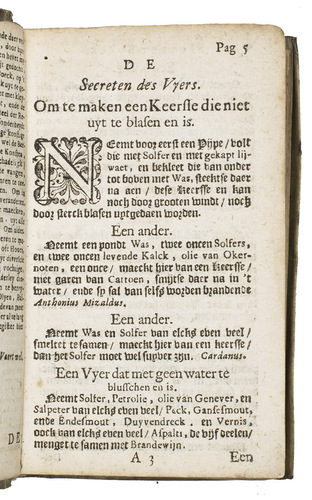 Pag 5
D E
Secreten des Vyers.
Om te maken een Keersse die niet
uyt te blasen en is.
NEemt voor eerst een Pijpe / volt
die met Solfer en met gekapt lij-
waet, en bekleet die van onder
tot boven met Was, steektse daer
na aen / dese Keersse en kan
noch door grooten windt / noch
door sterck blasen uptgedaen worden.
Een ander.
Neemt een pondt Was, twee oncen Solfers,
en twee oncen levende Kalck, olie van Oker-
noten, een once / maeckt hier van een Keersse /
met garen van Cattoen, smijtse daer na in 't
water / ende sy sal van selfs worden brandende
Anthonius Mizaldus.
Een ander.
Neemt Was en Solfer van elcks even veel /
smeltet te samen / maeckt hier van een keersse /
dan het Solfer moet wel suyver zijn. Cardanus.
Een Vyer dat met geen water te
blusschen en is.
Neemt Solfer, Petrolie, olie van Genever, en
Salpeter van elcks even veel / Peck, Gansesmout,
ende Endesmout, Duyvendreck. en Vernis,
oock van elcks even veel / Aspalti, de vijf deelen /
menget te samen met Brandewijn.
A 3
Een